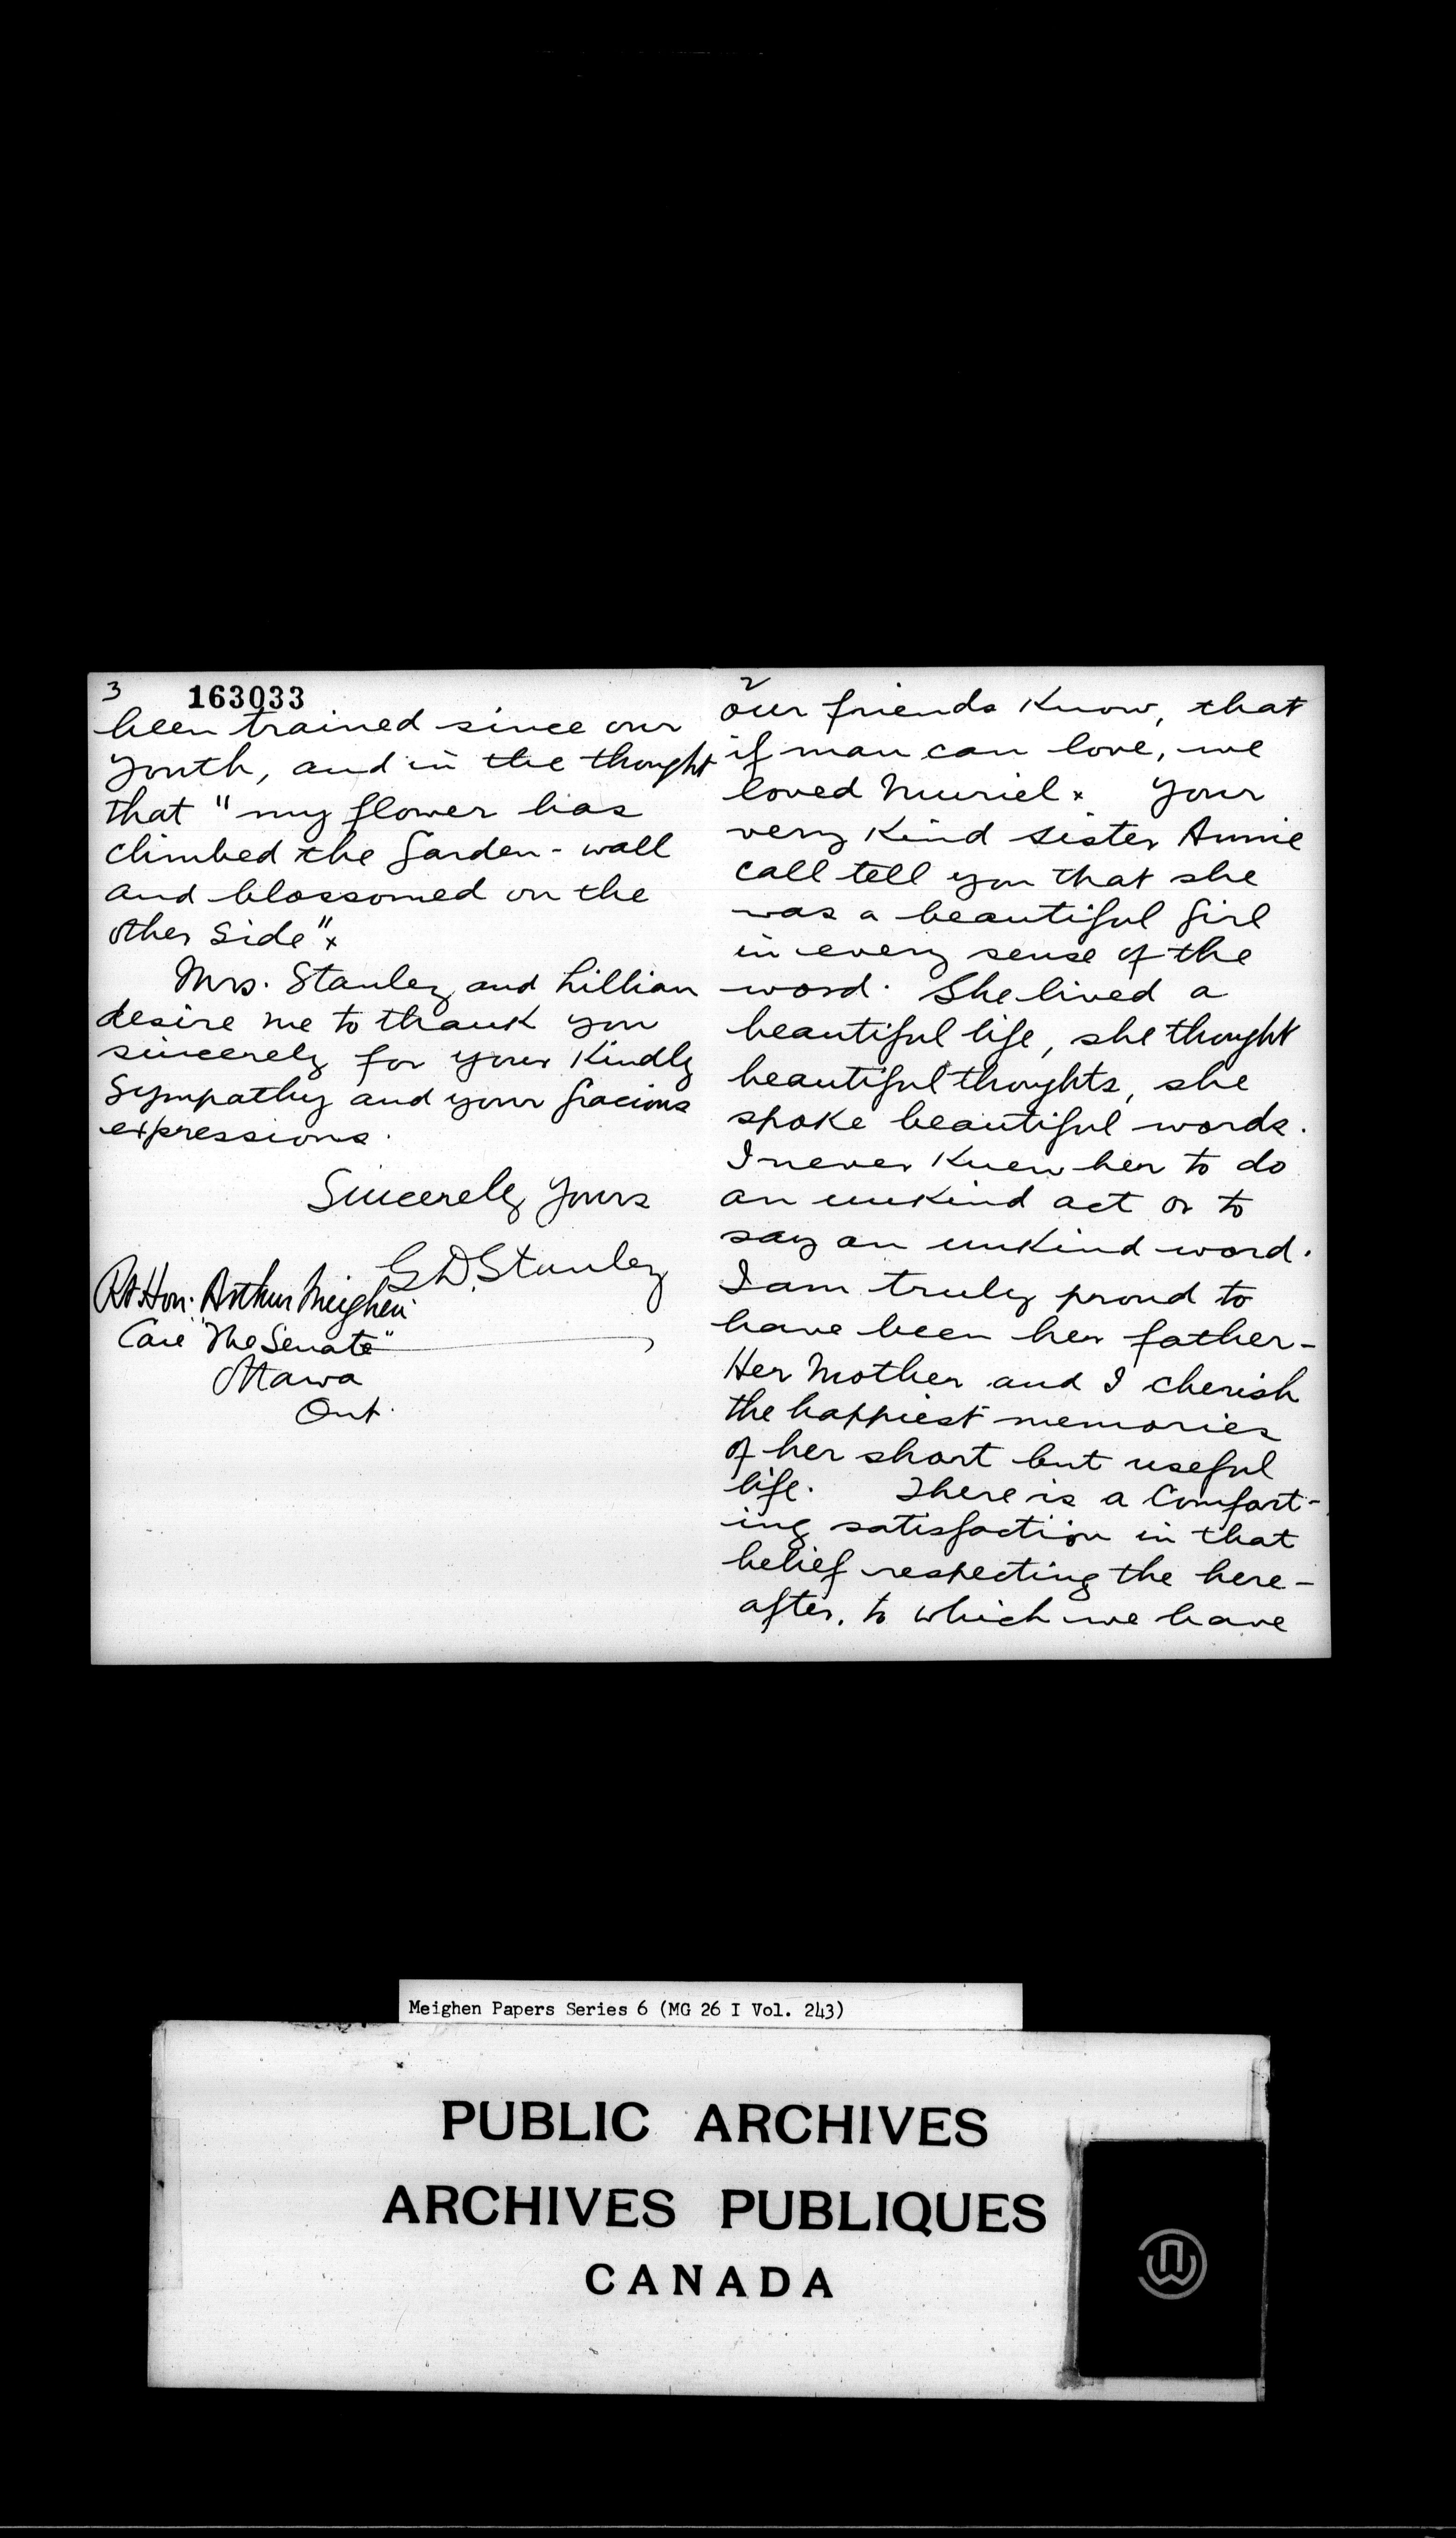 3
163033
been trained since our
youth, and in the thought
that "my flower has
climbed the garden-wall
and blossomed on the
other side" x
Mrs. Stanley and Lillian
desire me to thank you
sincerely for your kindly
sympathy and your gracious
expressions.
Sincerely yours
G.D. Stanley
Rt. Hon. Arthur Meighen
Care "The Senate"
Ottawa
Ont.
2
our friends know, that
if man can love, we
loved Muriel x Your
very kind sister Annie
call tell you that she
was a beautiful girl
in every sense of the
word. She lived a
beautiful life, she thought
beautiful thoughts, she
spoke beautiful words.
I never knew her to do
an unkind act or to
say an unkind word.
I am truly proud to
have been her father-
Her Mother and I cherish
the happiest memories
of her short but useful
life. There is a comfort-
ing satisfaction in that
belief respecting the here-
after, to which we have
Meighen Papers Series 6 (MG 26 I Vol. 243)
PUBLIC ARCHIVES
ARCHIVES PUBLIQUES
CANADA